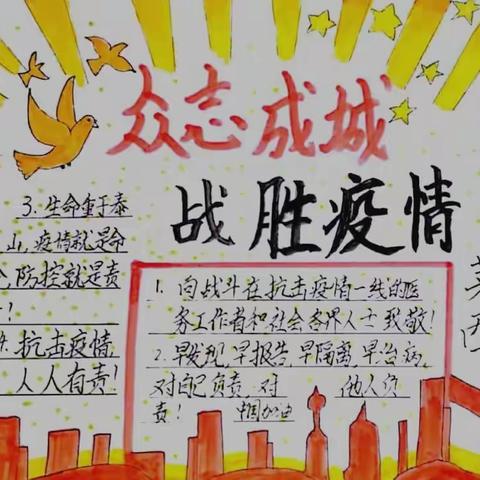 众志成城
战胜疫情
3.生命重于泰
山,疫情就是命
防控就是责
!
抗击疫情,
人人有责!
1.向战斗在抗击疫情一线的医
务工作者和社会各界人士致敬!
2.早发现,早报告,早隔离,早治病,
对自己负责 对 他人负
责! 中国加油